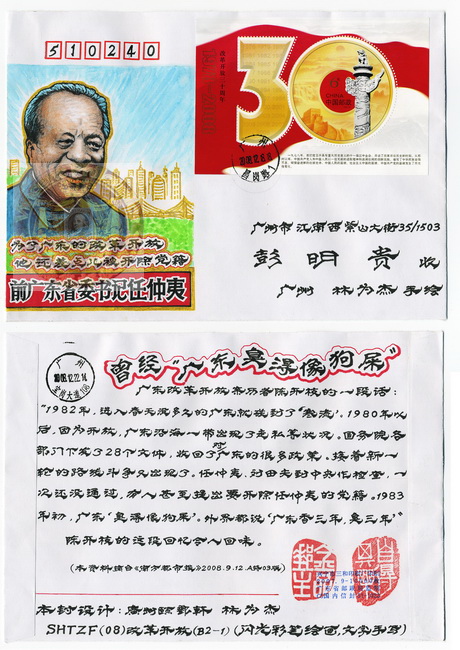 510240
改革开放三十周年
30
CHINA
中国邮政
广州市江南西紫山大街35/1503
彭明贵 收
广州 林为杰 手绘
为了广东的改革开放
他还差点儿被开除党籍
前广东省委书记任仲夷
曾经“广东臭得像狗屎”
广东改革开放亲历者陈开枝的一段话：
“1982年，进入春天没多久的广东就碰到了‘寒流’。1980年以
后，因为开放，广东沿海一带出现了走私等状况。国务院各
部门下发了28个文件，收回了对广东的很多政策。接着新一
轮的路线斗争又出现了。任仲夷、刘田夫到中央作检查，一
次还没通过，有人甚至提出要开除任仲夷的党籍。1983
年初，广东‘臭得像狗屎’。外界都说‘广东香三年，臭三年’”
陈开枝的这段回忆令人回味。
(本资料摘自《南方都市报》2008.9.12.A叠03版)
本封设计：广州 林为杰
SHTZF(08)改革开放(B2-1)(闪光彩笔绘画，文字手写)